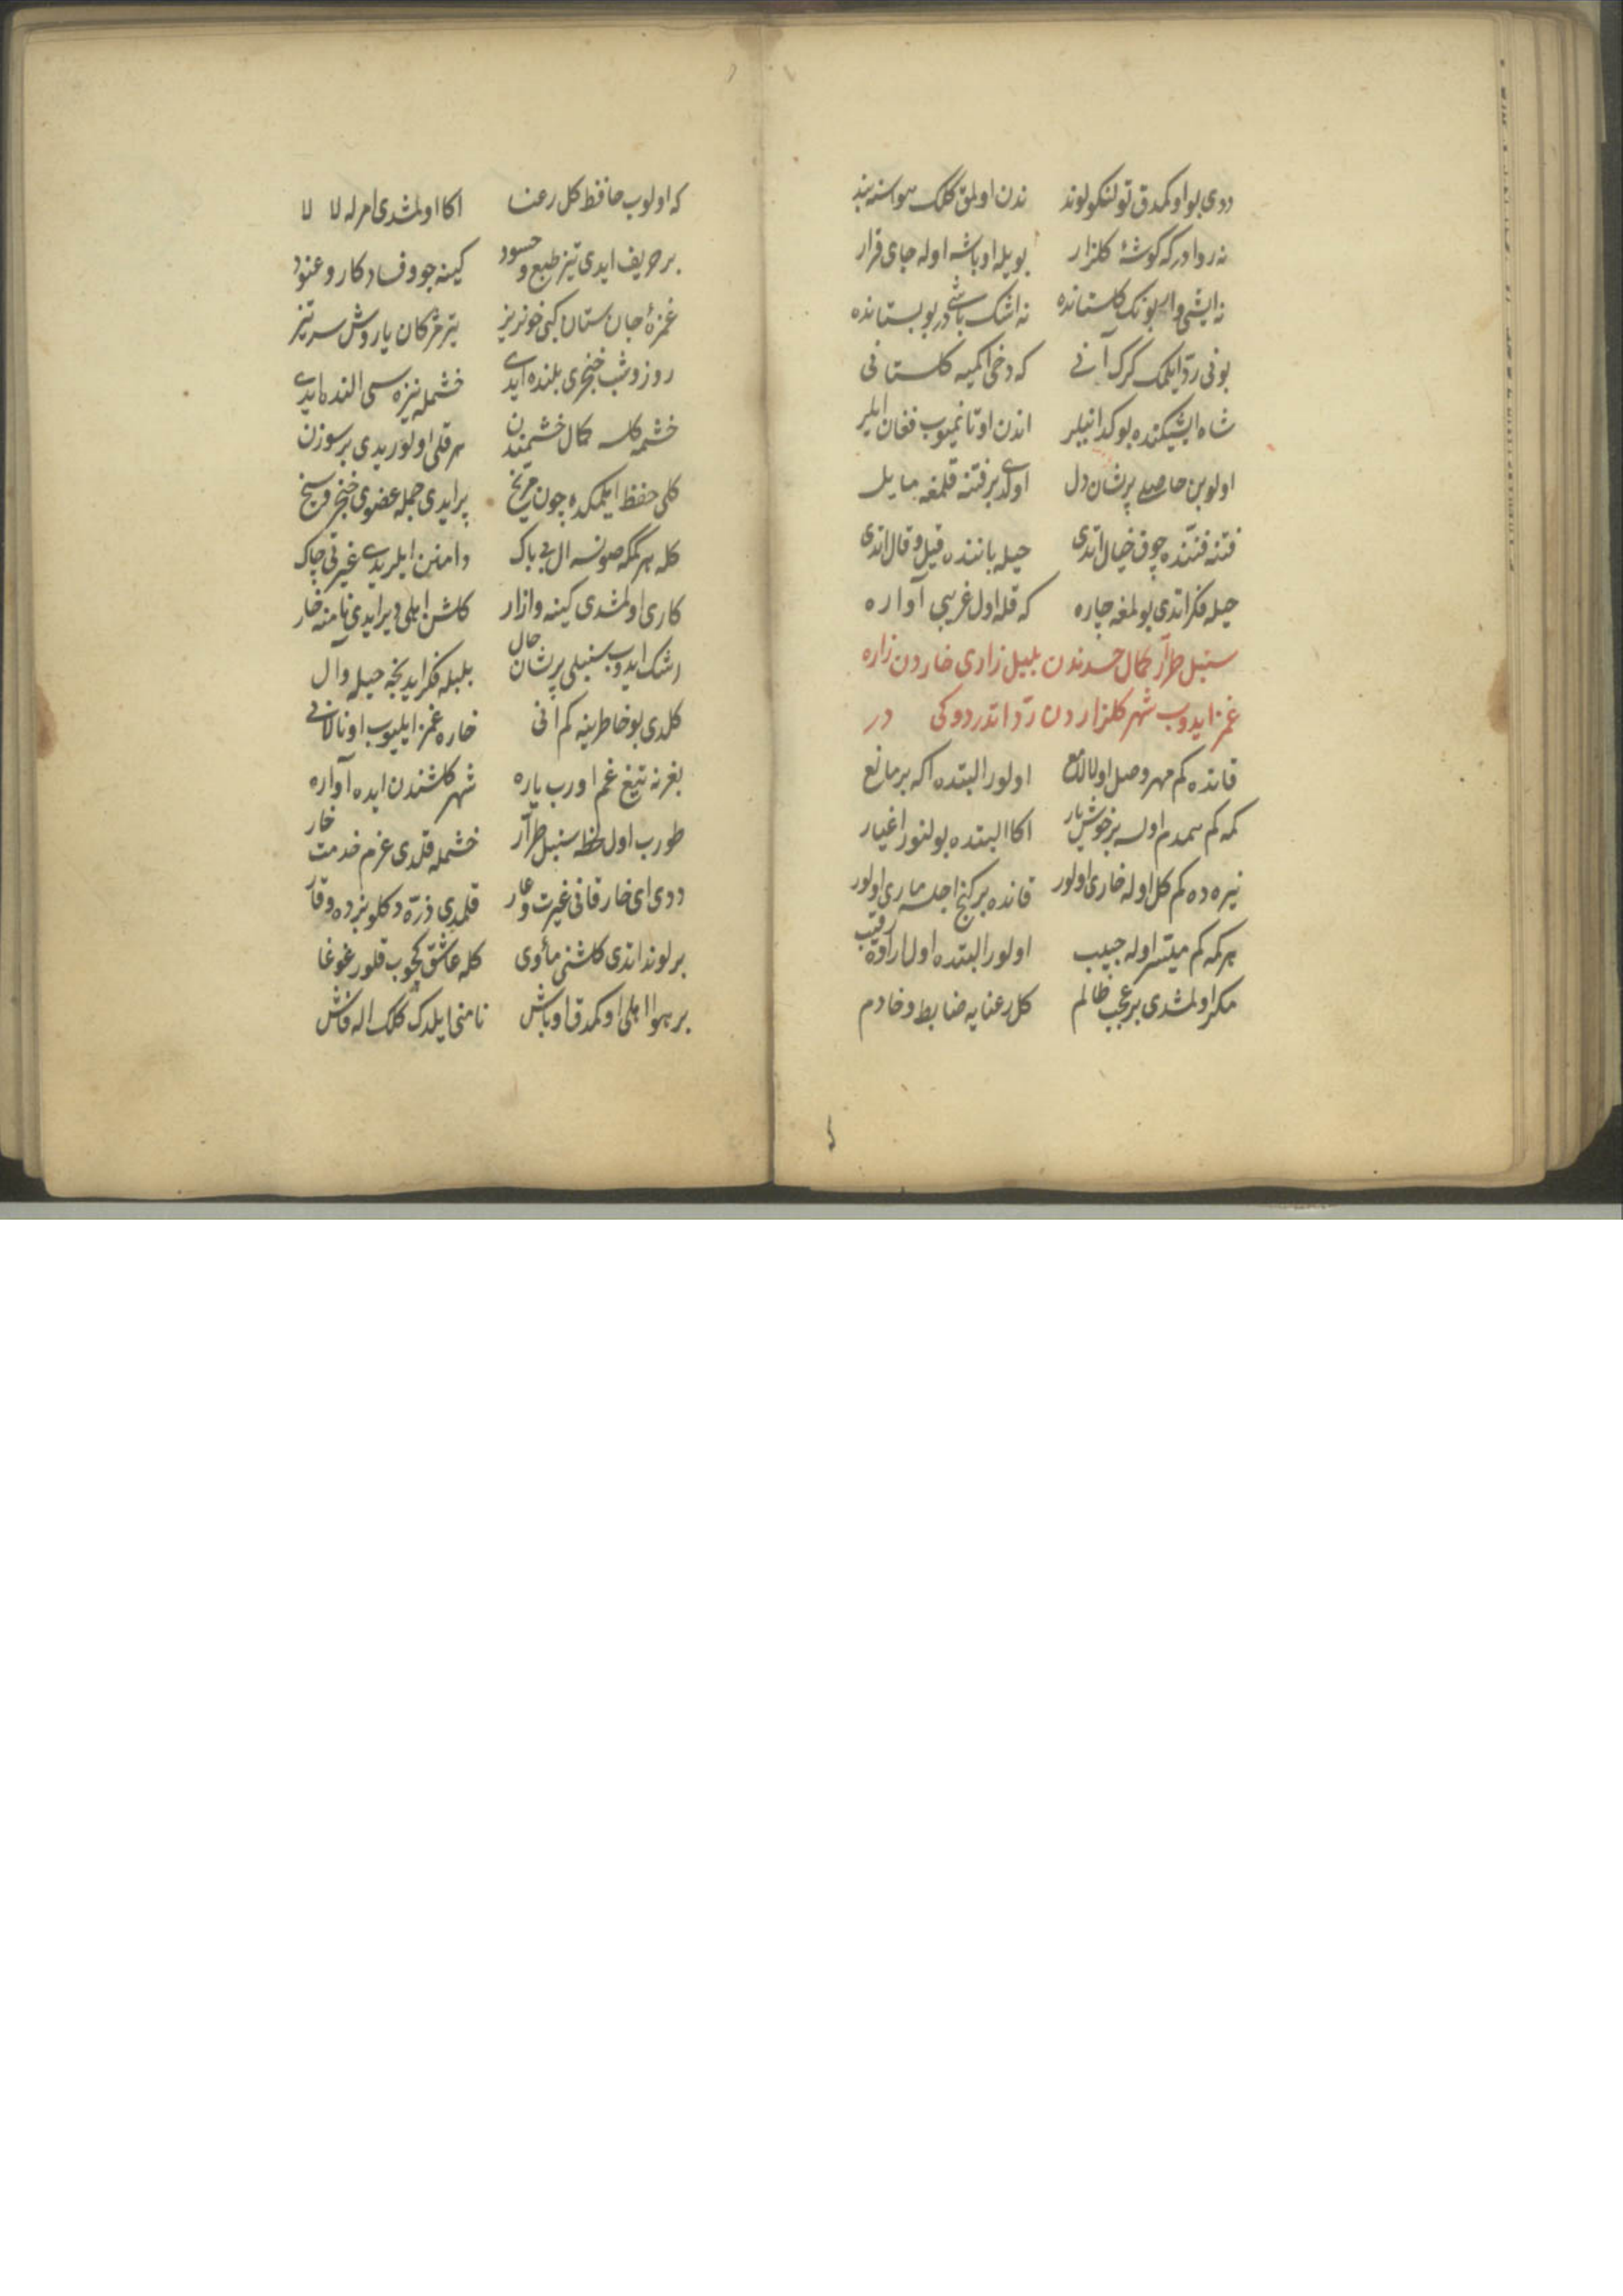 ددی بو اوکمدق تولنکو لوند ندن اولمق کلک هواسنه بند
نه روادر که کوشهٔ کلزار بویله اوباشه اوله جای قرار
نه ایشی وار بونک کلستانده نه اشک باشی در بو بستانده
بونی رد ایلمک کرک آنی که دخی اکمیه کلستانی
شاه ایشیکنده بو کدا نیلر اندن اوتانمیوب فغان ایلر
اولوبن حاصلی پرشان دل اولدی بر فتنه قلمغه مایل
فتنه فننده چوق خیال اتدی حیله بابنده قیل و قال اتدی
حیله فکر اتدی بولمغه چاره که قله اول غریبی آواره
سنبل طرار کمال حسدندن بلبل زاری خاردن زاره
غمز ایدوب شهر کلزاردن رد اتدردوکی در
قانده کم مهر وصل اولا لامع اولور البتده اکه بر مانع
کمه کم همدم اوله بر خوش یار اکا البتده بولنور اغیار
نیره ده کم کل اوله خاری اولور قانده بر کنج اجلسه ماری اولور
هر کمه کم میسر اوله حبیب اولور البتده اول آراده رقیب
مکر اولمشدی بر عجب ظالم کل رعنایه ضابط و خادم
که اولوب حافظ کل رعنا اکا اولمشدی امرله لا لا
بر حریف ایدی تیز طبع و حسود کینه جو و فساد کار و عنود
غمزهٔ جان ستان کبی خونریز تیر مژکان یار وش سر تیز
روز و شب خنجری بلنده ایدی خشمله نیزه سی النده ایدی
خشمه کلسه کمال خشمندن هر قلی اولوریدی بر سوزن
کلی حفظ ایلمکده چون مریخ پر ایدی جمله عضوی خنجر و سیخ
کله هر کمکه صونسه ال بی باک دامنن ایلریدی غیرتی چاک
کاری اولمشدی کینه و ازار کلشن اهلی دیر ایدی نامنه خار
رشک ایدوب سنبلی پرشان حال بلبله فکر ایدیجه حیله و آل
کلدی بو خاطرینه کم انی خاره غمز ایلیوب اونالانی
بغرنه تیغ غم اورب یاره شهر کلشندن ایده آواره
طورب اول لحظه سنبل طرار خشمله قلدی عزم خدمت خار
ددی ای خار قانی غیرت و عار قلمدی ذره دکلو بزده وقار
بر لوند اتدی کلشنی مأوی کله عاشق کچوب قلور غوغا
بر هوا اهلی اوکمدق اوباش نامنی ایلدک کلک اله فاش